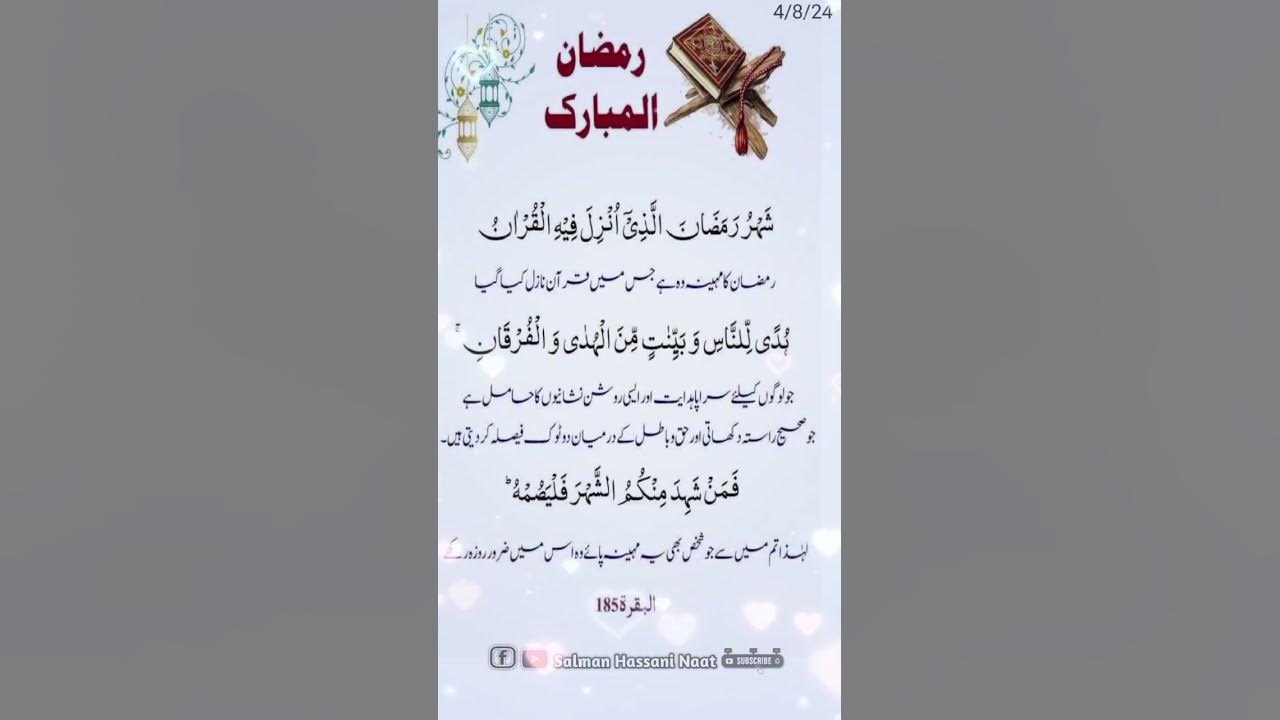 4/8/24
رمضان
المبارک
شَهْرُ رَمَضَانَ الَّذِیْۤ اُنْزِلَ فِیْهِ الْقُرْاٰنُ
رمضان کا مہینہ وہ ہے جس میں قرآن نازل کیا گیا
هُدًی لِّلنَّاسِ وَ بَیِّنٰتٍ مِّنَ الْهُدٰی وَ الْفُرْقَانِ ۚ
جو لوگوں کیلئے سراپا ہدایت اور ایسی روشن نشانیوں کا حامل ہے
جو صحیح راستہ دکھاتی اور حق و باطل کے درمیان دو ٹوک فیصلہ کر دیتی ہیں۔
فَمَنْ شَهِدَ مِنْكُمُ الشَّهْرَ فَلْیَصُمْهُ ؕ
لہٰذا تم میں سے جو شخص بھی یہ مہینہ پائے وہ اس میں ضرور روزہ رکھے
البقرة 185
Salman Hassani Naat SUBSCRIBE